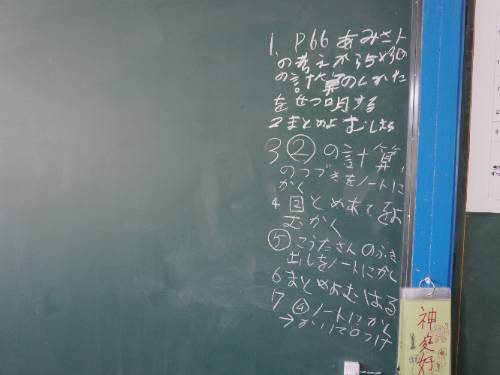 1. P66 あみさん
の考えから35×30
の計算のしかた
をせつ明する
2 まとめよむしたち
3 ②の計算
のつづきをノートに
かく
4 国とめあてをよ
むかく
⑤ こうたさんのふき
出しをノートにかく
6 まとめよむはる
7 ④ノートにかく
神庭好